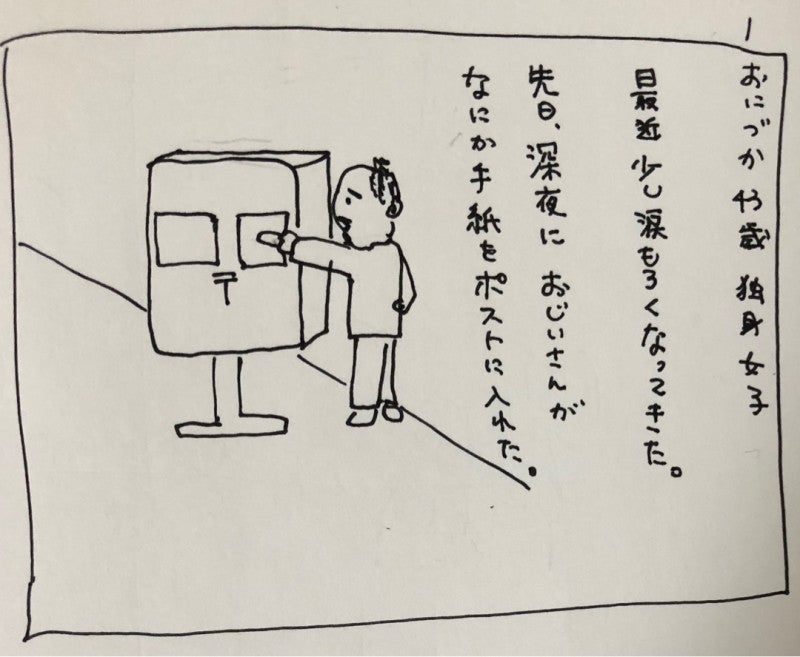 おにづか 43歳 独身 女子
最近 少し涙もろくなってきた。
先日、深夜に おじいさんが
なにか手紙をポストに入れた。
〒